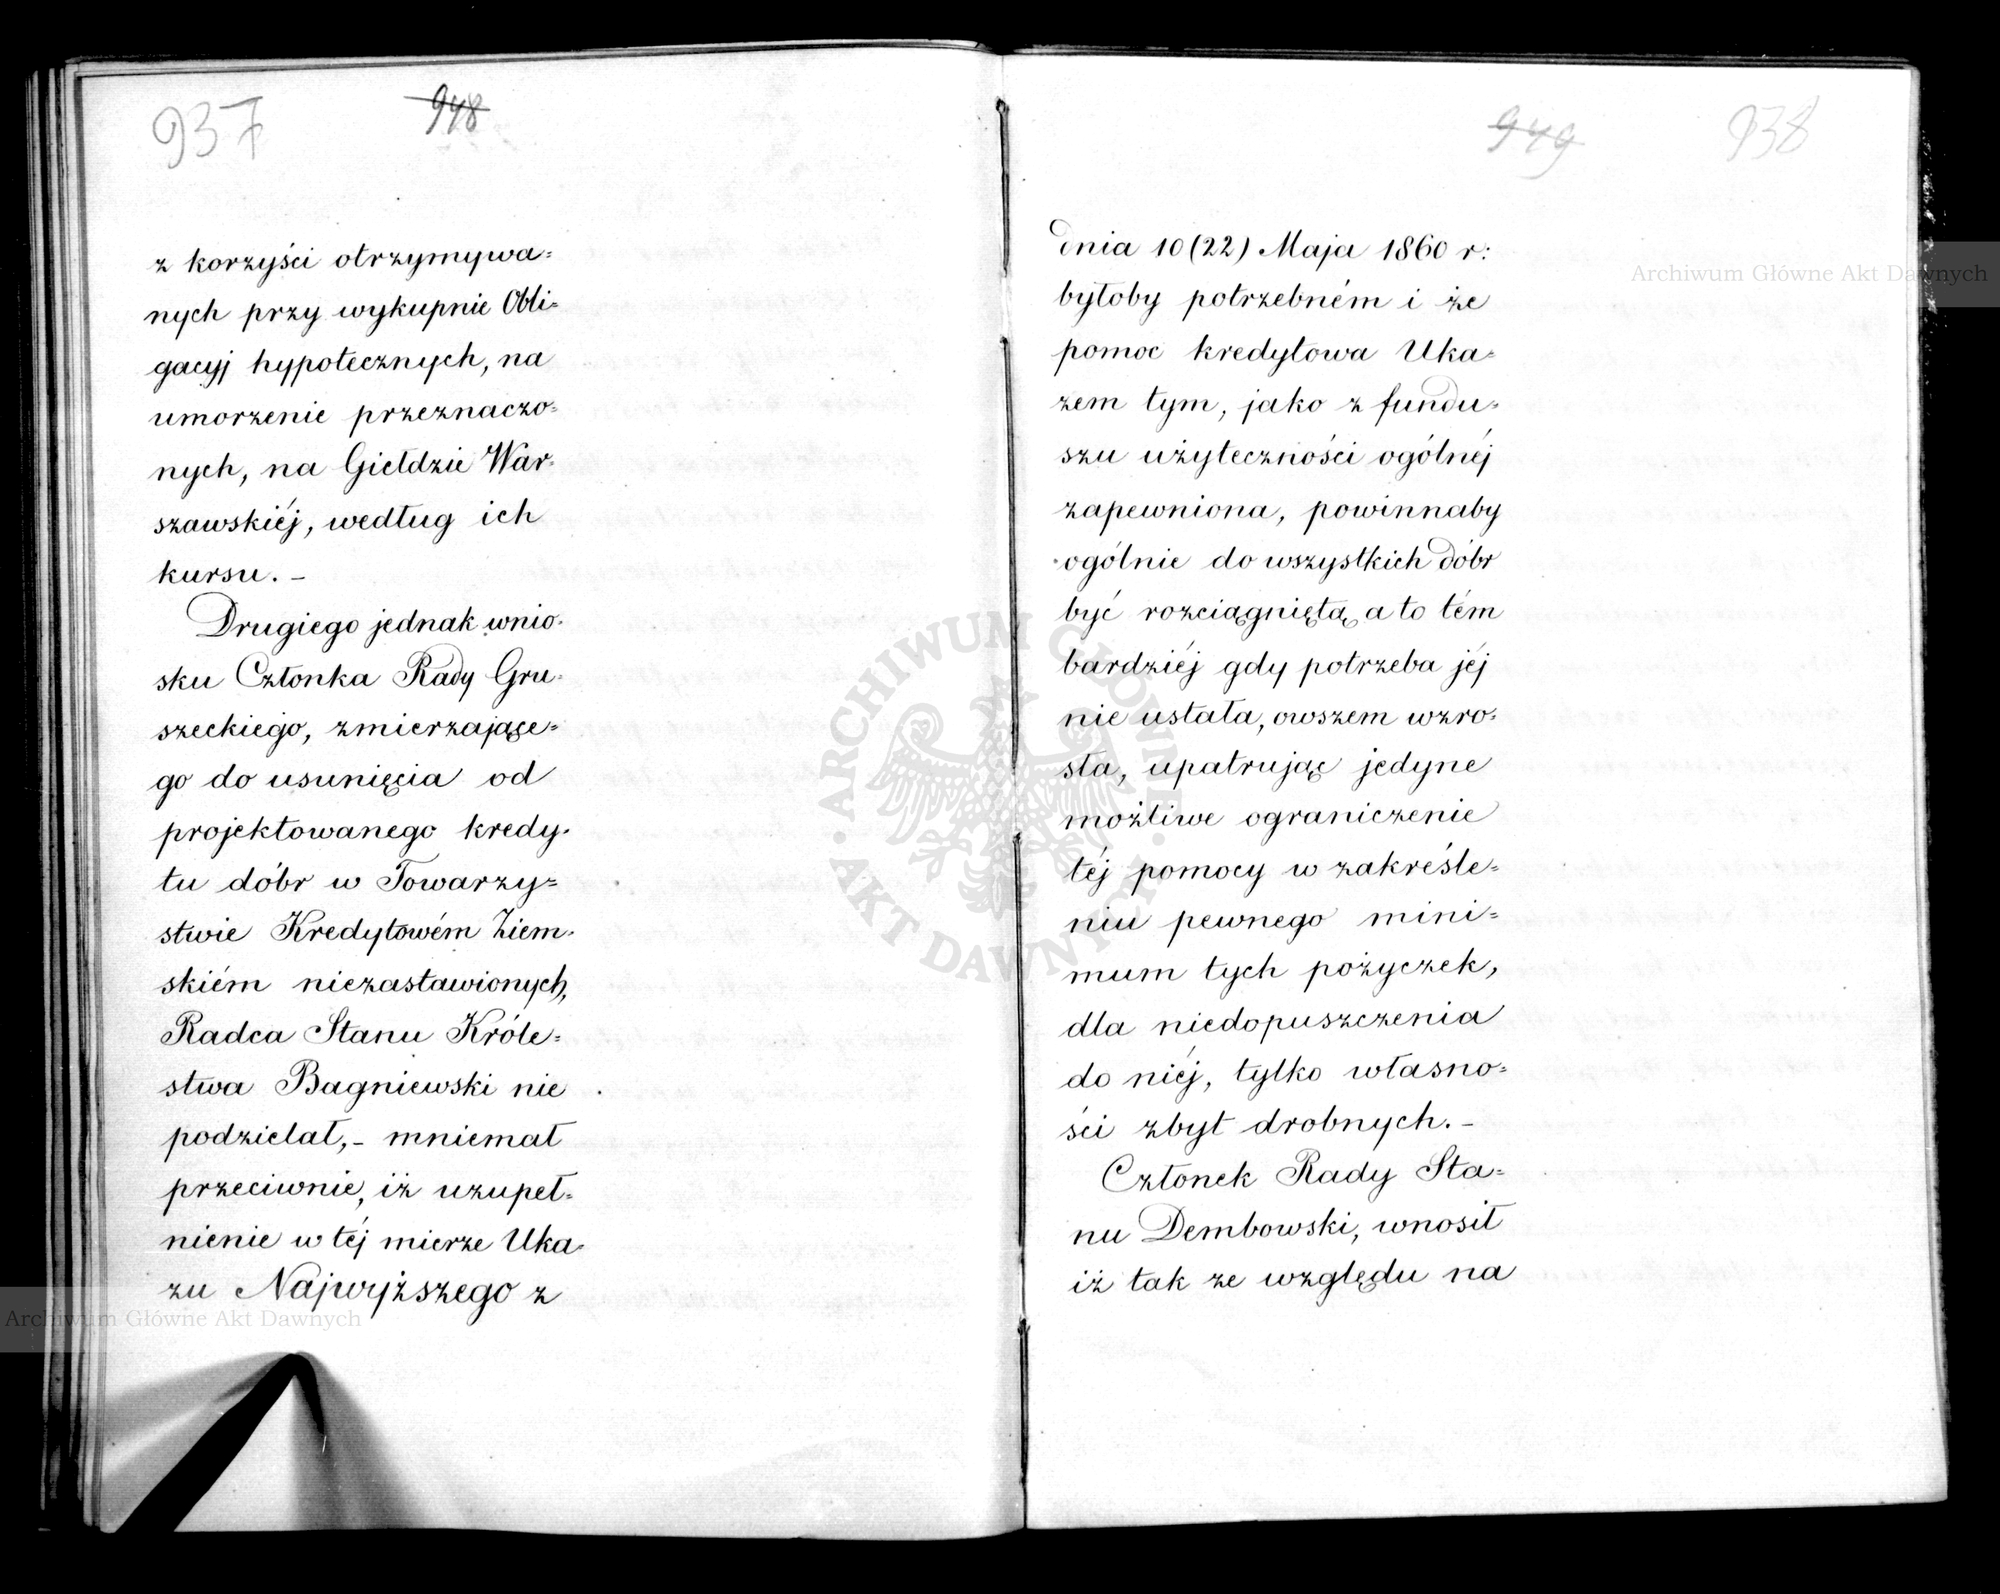 937 948
z korzyści otrzymywa=
nych przy wykupnie Obli=
gacyj hypotecznych, na
umorzenie przeznaczo=
nych, na Giełdzie War-
szawskiéj, według ich
kursu. –
Drugiego jednak wnio-
sku Członka Rady Gru-
szeckiego, zmierzające=
go do usunięcia od
projektowanego kredy-
tu dóbr w Towarzy=
stwie Kredytowém Ziem-
skiém niezastawionych,
Radca Stanu Króle=
stwa Bagniewski nie
podzielał, – mniemał
przeciwnie, iż uzupeł=
nienie w téj mierze Uka-
zu Najwyższego z
949 938
dnia 10 (22) Maja 1860 r:
byłoby potrzebném i że
pomoc kredytowa Uka=
zem tym, jako z fundu=
szu użyteczności ogólnéj
zapewniona, powinnaby
ogólnie do wszystkich dóbr
być rozciągniętą, a to tém
bardziéj gdy potrzeba jéj
nie ustała, owszem wzro=
sła, upatrując jedyne
możliwe ograniczenie
téj pomocy w zakreśle=
niu pewnego mini=
mum tych pożyczek,
dla niedopuszczenia
do niéj, tylko własno=
ści zbyt drobnych. –
Członek Rady Sta=
nu Dembowski, wnosił
iż tak ze względu na
Archiwum Główne Akt Dawnych
ARCHIWUM GŁÓWNE AKT DAWNYCH
Archiwum Główne Akt Dawnych